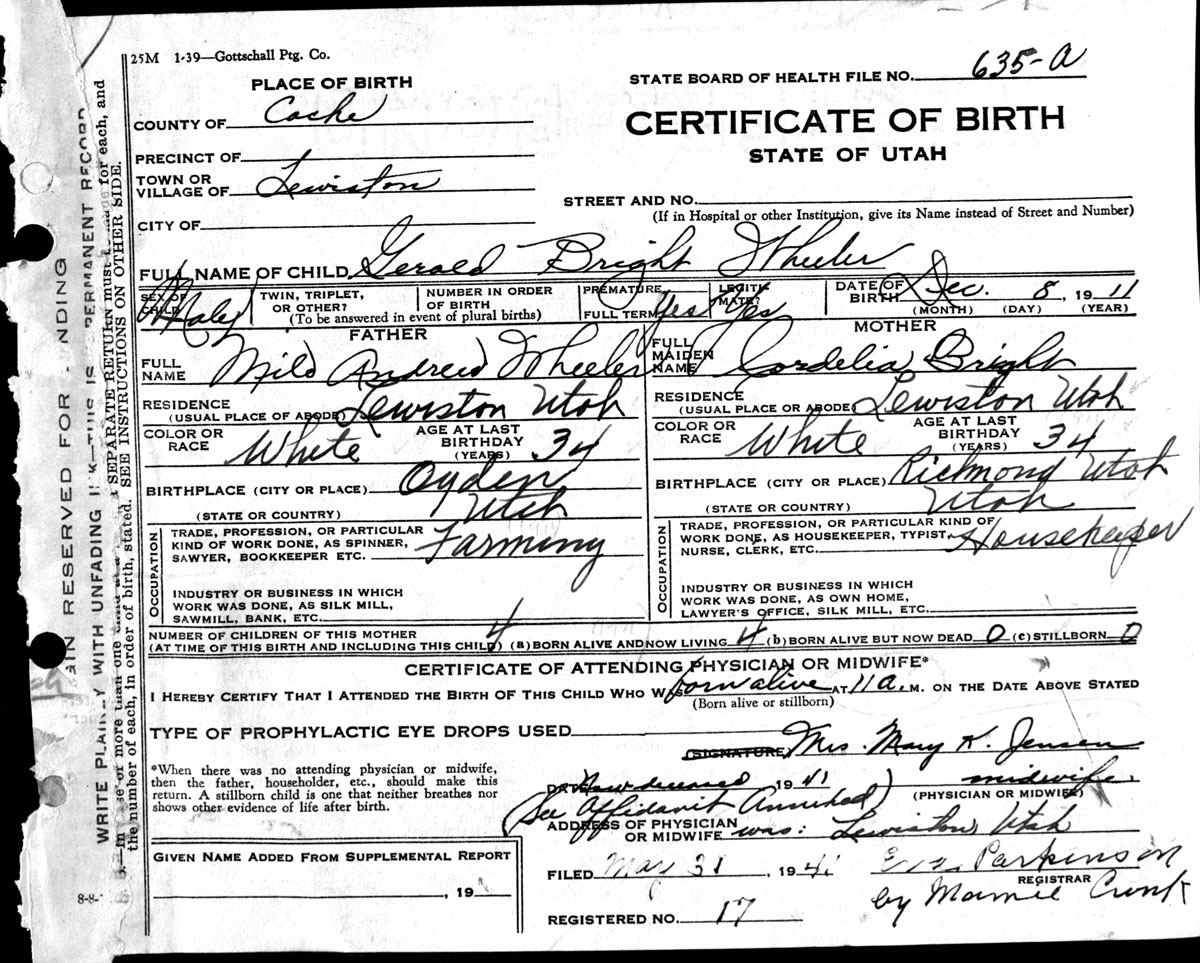 25M 1-39—Gottschall Ptg. Co.
STATE BOARD OF HEALTH FILE NO. 635-a
PLACE OF BIRTH
COUNTY OF Cache
CERTIFICATE OF BIRTH
STATE OF UTAH
PRECINCT OF
TOWN OR VILLAGE OF Lewiston
STREET AND NO.
(If in Hospital or other Institution, give its Name instead of Street and Number)
CITY OF
FULL NAME OF CHILD Gerald Bright Wheeler
SEX OF CHILD Male
TWIN, TRIPLET, OR OTHER?
NUMBER IN ORDER OF BIRTH
(To be answered in event of plural births)
PREMATURE
FULL TERM Yes
LEGITIMATE? Yes
DATE OF BIRTH Dec. 8, 1911
(MONTH) (DAY) (YEAR)
FATHER
FULL NAME Milo Andrew Wheeler
RESIDENCE (USUAL PLACE OF ABODE) Lewiston Utah
COLOR OR RACE White AGE AT LAST BIRTHDAY (YEARS) 34
BIRTHPLACE (CITY OR PLACE) Ogden
(STATE OR COUNTRY) Utah
OCCUPATION
TRADE, PROFESSION, OR PARTICULAR
KIND OF WORK DONE, AS SPINNER,
SAWYER, BOOKKEEPER ETC. Farming
INDUSTRY OR BUSINESS IN WHICH
WORK WAS DONE, AS SILK MILL,
SAWMILL, BANK, ETC.
MOTHER
FULL MAIDEN NAME Cordelia Bright
RESIDENCE (USUAL PLACE OR ABODE) Lewiston Utah
COLOR OR RACE White AGE AT LAST BIRTHDAY (YEARS) 34
BIRTHPLACE (CITY OR PLACE) Richmond Utah
(STATE OR COUNTRY) Utah
OCCUPATION
TRADE, PROFESSION, OR PARTICULAR KIND OF
WORK DONE, AS HOUSEKEEPER, TYPIST,
NURSE, CLERK, ETC. Housekeeper
INDUSTRY OR BUSINESS IN WHICH
WORK WAS DONE, AS OWN HOME,
LAWYER'S OFFICE, SILK MILL, ETC.
NUMBER OF CHILDREN OF THIS MOTHER
(AT TIME OF THIS BIRTH AND INCLUDING THIS CHILD) 4 (a) BORN ALIVE AND NOW LIVING 4 (b) BORN ALIVE BUT NOW DEAD 0 (c) STILLBORN 0
CERTIFICATE OF ATTENDING PHYSICIAN OR MIDWIFE*
I HEREBY CERTIFY THAT I ATTENDED THE BIRTH OF THIS CHILD WHO WAS born alive AT 11 a. M. ON THE DATE ABOVE STATED
(Born alive or stillborn)
TYPE OF PROPHYLACTIC EYE DROPS USED
(SIGNATURE) Mrs. Mary K. Jensen
*When there was no attending physician or midwife,
then the father, householder, etc., should make this
return. A stillborn child is one that neither breathes nor
shows other evidence of life after birth.
Now deceased 1941 midwife
(PHYSICIAN OR MIDWIFE)
(See Affidavit Annexed)
ADDRESS OF PHYSICIAN OR MIDWIFE was: Lewiston, Utah
GIVEN NAME ADDED FROM SUPPLEMENTAL REPORT
, 19
FILED May 31, 1941 Parkinson
REGISTRAR
by Mamie
REGISTERED NO. 17
8-8-
GIN RESERVED FOR NDING
WRITE PLAINLY WITH UNFADING INK—THIS IS PERMANENT RECORD
of more than one SEPARATE RETURN must be made for each, and
the number of each, in order of birth, stated. SEE INSTRUCTIONS ON OTHER SIDE.